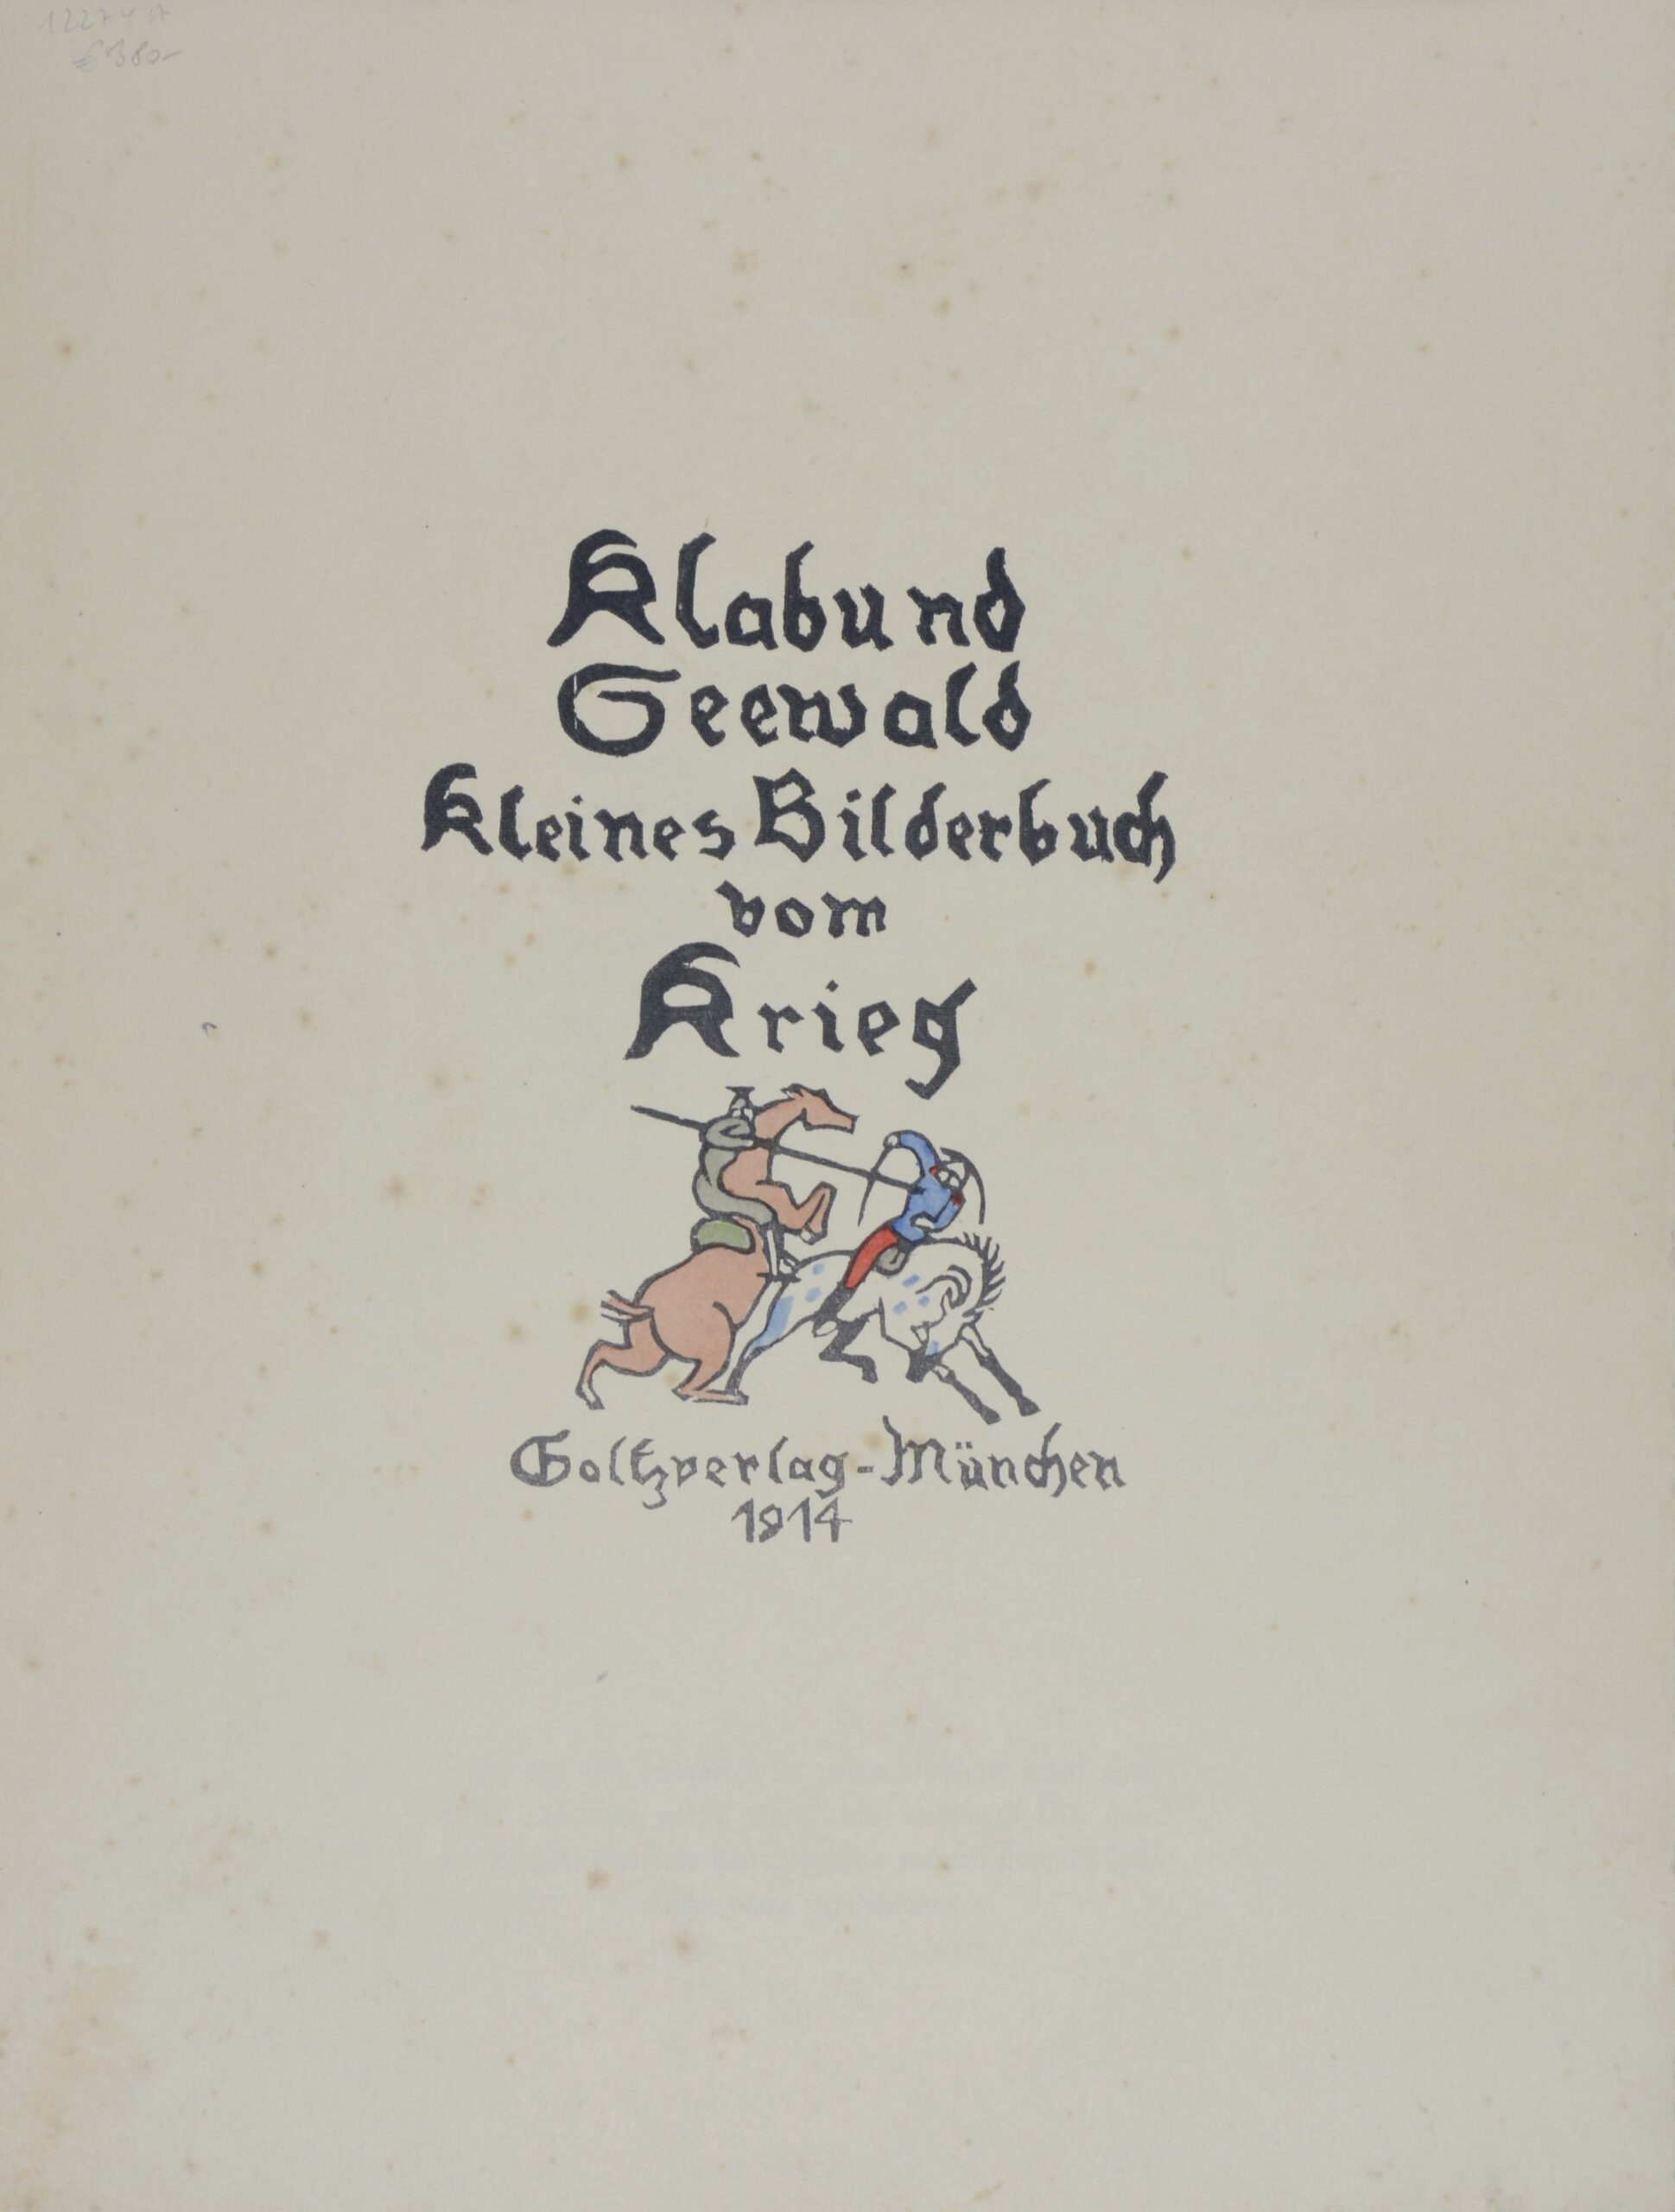 12274 A
€ 380-
Klabund
Seewald
Kleines Bilderbuch
vom
Krieg
Goltzverlag-München
1914